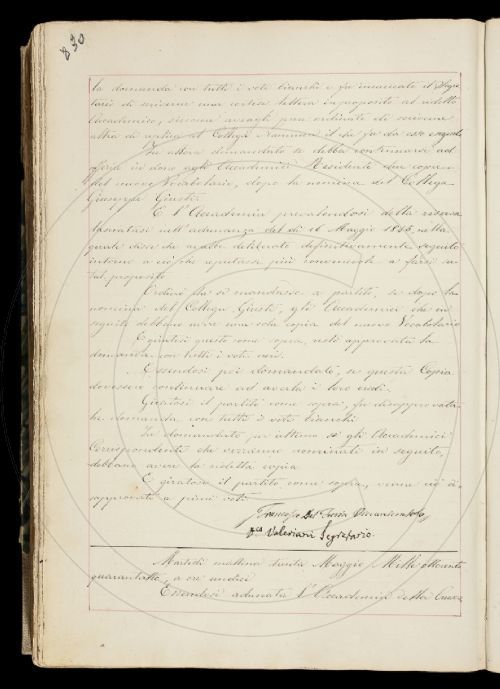 830
la domanda con tutti i voti bianchi e fu incaricato il Segre-
tario di scrivere una cortese lettera in proposito al suddetto
Accademico, siccome avea pure ordinato di scrivere
altra di al Collega Nannucci il che fu da esso eseguito
Fu allora domandato se debba continuarsi ad
offrire in dono agli Accademici Residenti due copie
del nuovo Vocabolario, dopo la nomina del Collega
Giuseppe Giusti.
E l'Accademia prevalendosi della riserva
lasciatasi nell'adunanza del dì 16 Maggio 1845, nella
quale disse da avere deliberato definitivamente in seguito
intorno a ciò che reputasse più conveniente a farsi su
tal proposito
Ordinò che si mandasse a partito, se dopo la
nomina del Collega Giusti, gli Accademici che in
seguito debbano avere una sola copia del nuovo Vocabolario
E giratosi questo come sopra, restò approvata la
domanda con tutti i voti neri.
Essendosi poi domandato, se questa Copia
dovesse continuare ad averla i loro eredi.
Giratosi il partito come sopra, fu disapprovata
la domanda con tutti i voti bianchi
Fu domandato per ultimo se gli Accademici
Corrispondenti che verranno nominati in seguito,
debbano avere la suddetta copia
E giratosi il partito come sopra, venne ciò di-
sapprovato a pieni voti
Francesco Del Furia
Valeriani Segretario
Martedì mattina trenta Maggio Mille ottocento
quarantotto, a ore undici
Essendosi adunata l'Accademia della Crus-